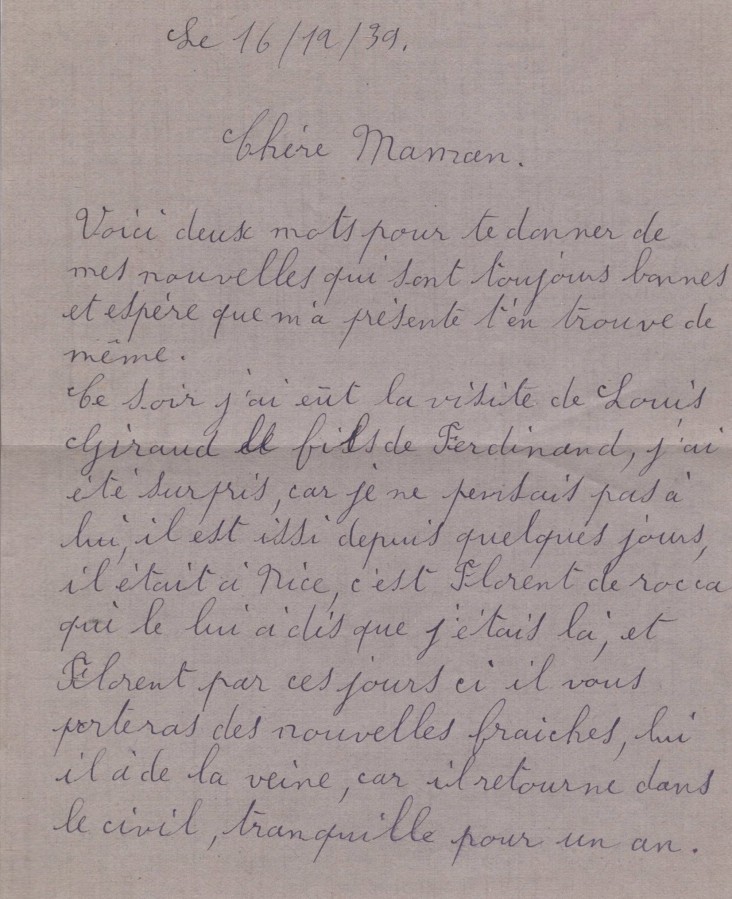 Le 16/12/39.
Chère Maman.
Voici deux mots pour te donner de
mes nouvelles qui sont toujours bonnes
et espère que m'a présente t'en trouve de
même.
Ce soir j'ai eût la visite de Louis
Giraud le fils de Ferdinand, j'ai
été surpris, car je ne pensais pas à
lui, il est issi depuis quelques jours,
il était à Nice, c'est Florent de rocca
qui le lui à dis que j'étais là, et
Florent par ces jours ci il vous
porteras des nouvelles fraiches, lui
il à de la veine, car il retourne dans
le civil, tranquille pour un an.